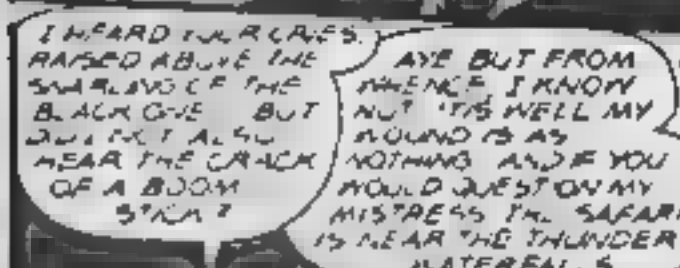 I HEARD YOUR CRIES
RAISED ABOVE THE
SNARLING OF THE
BLACK ONE BUT
DID I NOT ALSO
HEAR THE CRACK
OF A BOOM
STICK?
AYE BUT FROM
WHENCE I KNOW
NOT 'TIS WELL MY
WOUND IS AS
NOTHING AND IF YOU
WOULD QUESTION MY
MISTRESS THE SAFARI
IS NEAR THE THUNDER
WATERFALLS